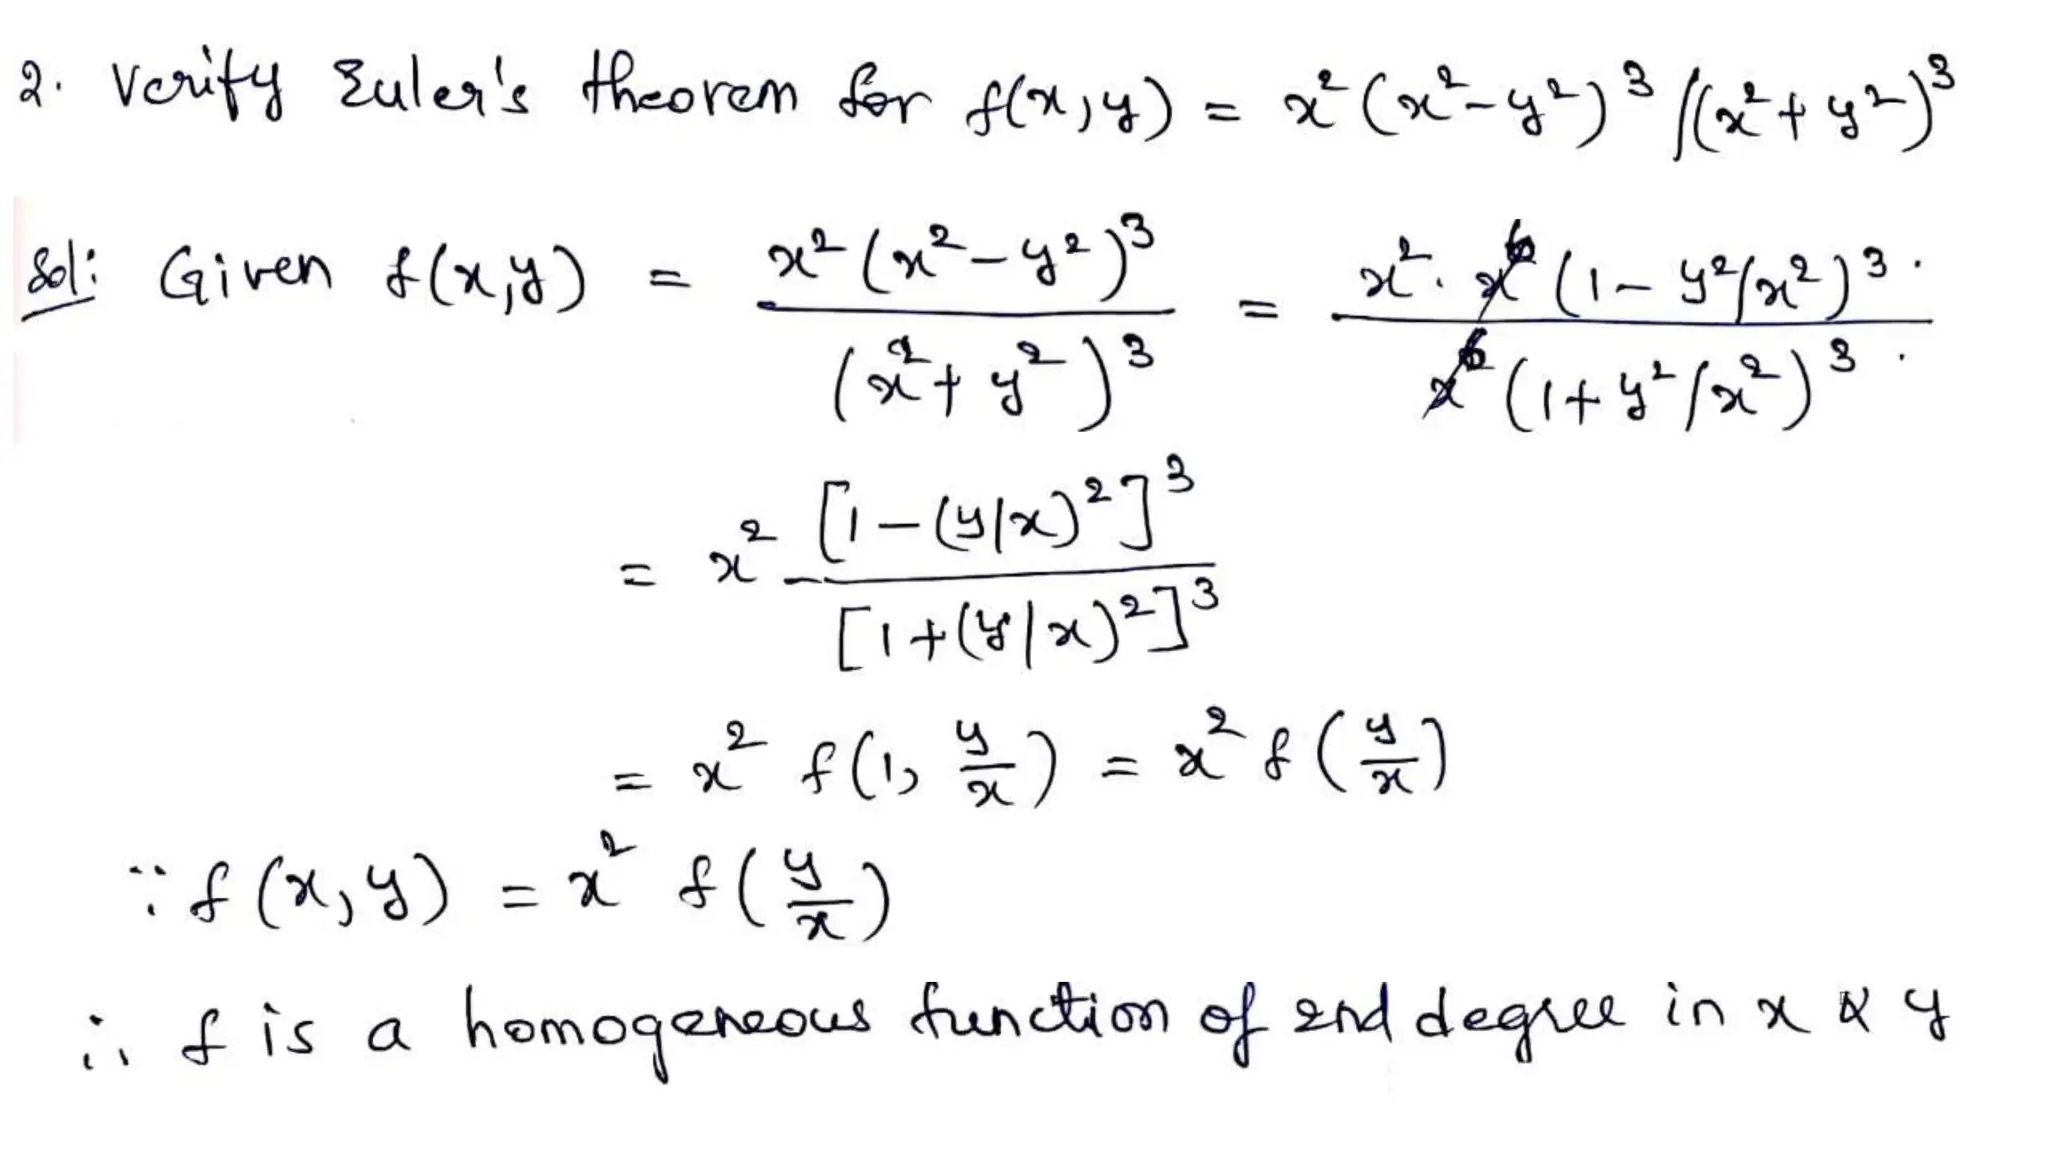 2. Verify Euler's theorem for f(x,y) = x²(x²-y²)³/(x²+y²)³
Sol: Given f(x,y) = x²(x²-y²)³ / (x²+y²)³ = x². x⁶(1-y²/x²)³. / x⁶(1+y²/x²)³.
= x² [1-(y/x)²]³ / [1+(y/x)²]³
= x² f(1, y/x) = x² f(y/x)
∵ f(x,y) = x² f(y/x)
∴ f is a homogeneous function of 2nd degree in x & y